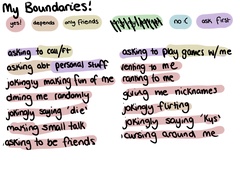 My Boundaries!
yes!
depends
only friends
no <
ask first
asking to call/ft
asking abt personal stuff
jokingly making fun of me
dming me randomly
jokingly saying 'die'
making small talk
asking to be friends
asking to play games w/me
venting to me
ranting to me
giving me nicknames
jokingly flirting
jokingly saying 'kys'
cursing around me